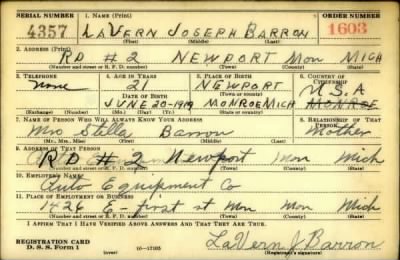 SERIAL NUMBER 1. NAME (Print) ORDER NUMBER
4357 LAVERN JOSEPH BARRON 1603
(First) (Middle) (Last)
2. ADDRESS (Print)
RD #2 NEWPORT Mon MICH
(Number and street or R. F. D. number) (Town) (County) (State)
3. TELEPHONE 4. AGE IN YEARS 5. PLACE OF BIRTH 6. COUNTRY OF CITIZENSHIP
None 21 NEWPORT U.S.A
DATE OF BIRTH (Town or county)
JUNE 20-1919 MONROE MICH MONROE
(Exchange) (Number) (Mo.) (Day) (Yr.) (State or country)
7. NAME OF PERSON WHO WILL ALWAYS KNOW YOUR ADDRESS 8. RELATIONSHIP OF THAT PERSON
Mrs Stella Barron Mother
(Mr., Mrs., Miss) (First) (Middle) (Last)
9. ADDRESS OF THAT PERSON
RD #2 Newport Mon Mich
(Number and street or R. F. D. number) (Town) (County) (State)
10. EMPLOYER'S NAME
Auto Equipment Co
11. PLACE OF EMPLOYMENT OR BUSINESS
1426 E- first st Mon Mon Mich
(Number and street or R. F. D. number) (Town) (County) (State)
I AFFIRM THAT I HAVE VERIFIED ABOVE ANSWERS AND THAT THEY ARE TRUE.
REGISTRATION CARD
D. S. S. Form 1 (over) 16-17105 LaVern J Barron